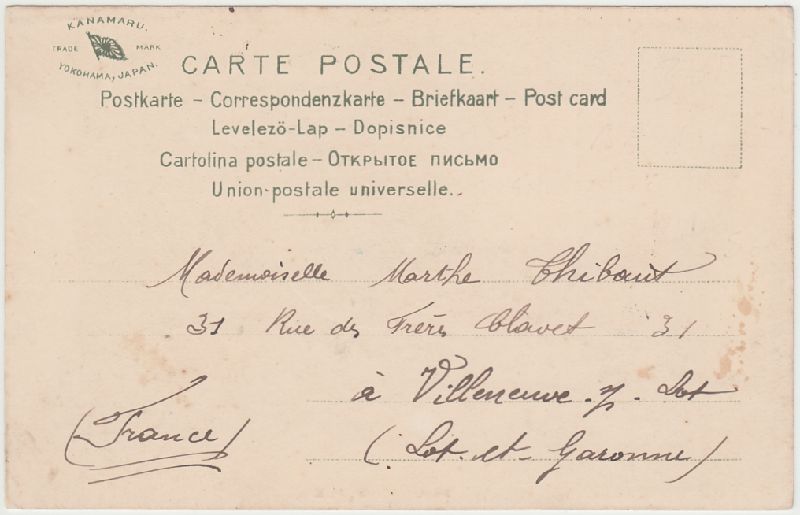 KANAMARU.
TRADE MARK
YOKOHAMA, JAPAN.
CARTE POSTALE.
Postkarte – Correspondenzkarte – Briefkaart – Post card
Levelezö-Lap – Dopisnice
Cartolina postale – Открытое письмо
Union-postale universelle.
Mademoiselle Marthe Thibaut
31 Rue des Frères Clavet 31
à Villeneuve s/ Lot
(France)
(Lot-et-Garonne)